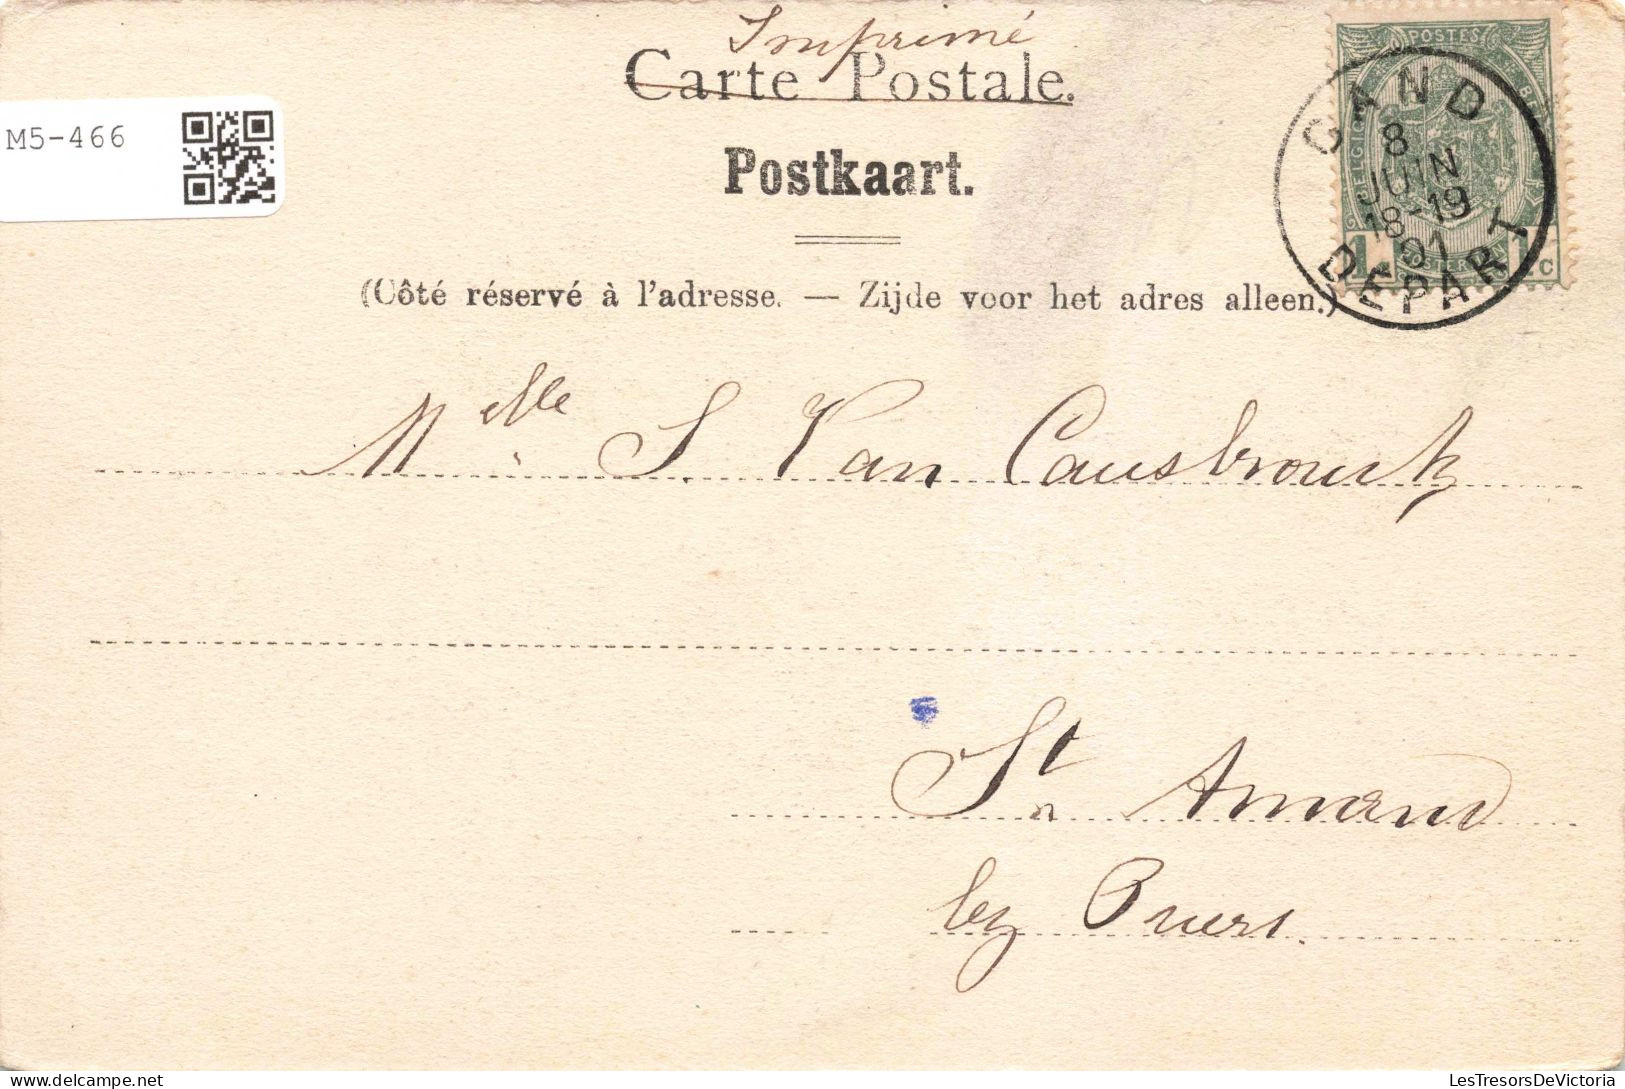 Imprimé
Carte Postale.
M5-466
Postkaart.
(Côté réservé à l'adresse. — Zijde voor het adres alleen.)
POSTES
BELGIQUE
1 c
GAND
8
JUIN
18-19
01
DEPART
Melle S. Van Causbrouck
St Amand
bij Puers.
LesTresorsDeVictoria